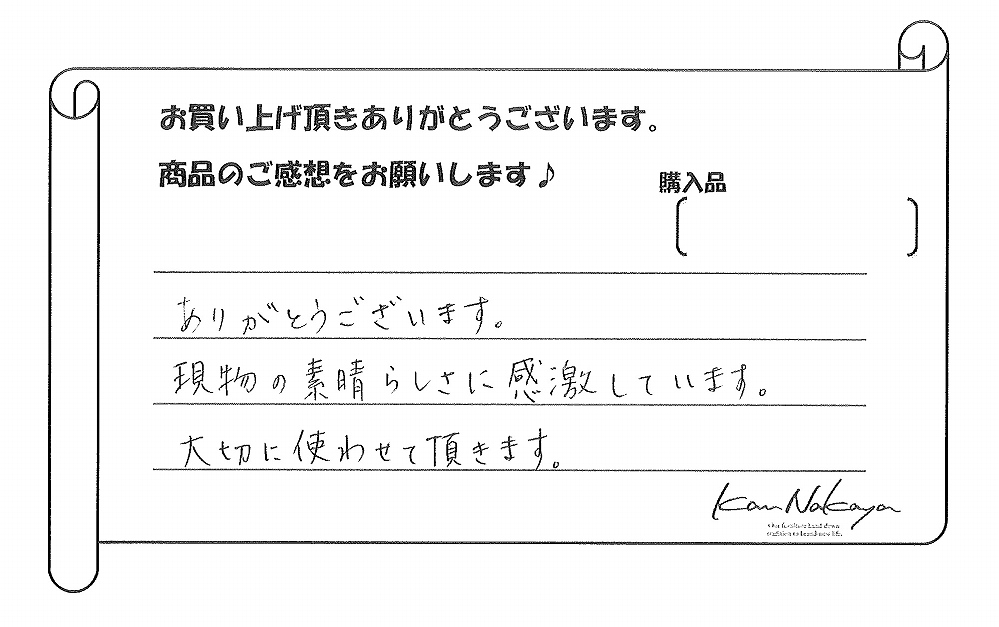 お買い上げ頂きありがとうございます。
商品のご感想をお願いします♪
購入品
ありがとうございます。
現物の素晴らしさに感激しています。
大切に使わせて頂きます。
Kan Nakaya
Our furniture hand down
tradition to brand-new life.